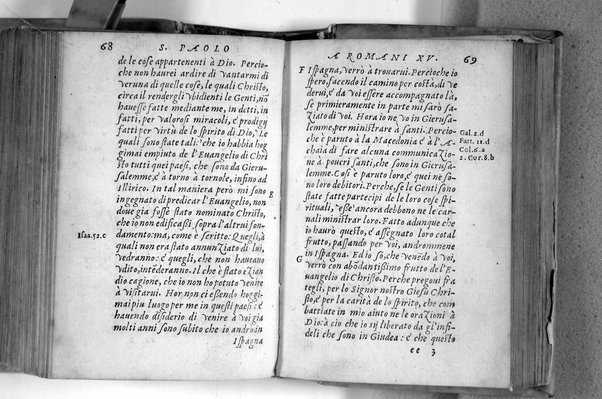 68 S. PAOLO
de le cose appartenenti à Dio. Percio-
che non haurei ardire di vantarmi di
veruna di quelle cose, le quali Christo,
circa il rendergli vbidienti le Genti, nõ
hauesse fatte mediante me, in detti, in
fatti, per valorosi miracoli, e prodigÿ
fatti per virtù de lo spirito di Dio, Le
quali sono state tali: che io habbia hog
gimai empiuto de l'Euangelio di Chri
sto tutti quei paesi, che sono da Gieru-
salemme, è à torno à tornole, insino ad
Illirico. In tal maniera però mi sono
E
ingegnato di predicar l'Euangelio, non
doue gia fosse stato nominato Christo,
che io non edificassi sopra l'altrui fon-
Isaa.52.c
damento: ma, come è scritto: Quegli, à
quali non era stato annunziato di lui,
vedranno: è quegli, che non haueano
vdito, intẽderanno. Il che è stato ezian
dio cagione, che io non ho potuto venire
à visitarui. Hor, non ci essendo hoggi
mai piu luogo per me in questi paesi: è
hauendo disiderio di venire à voi gia
molti anni sono subito che io andrò in
Ispagna
A ROMANI XV. 69
F
Ispagna, verrò à trouarui. Percioche io
spero, facendo il camino per costà, di ve
derui, è da voi essere accompagnato là,
se primieramente in parte mi sarò sa-
ziato di voi. Hora io ne vo in Gierusa-
lemme, per ministrare à santi. Percio-
Gal.2.d
che è paruto à la Macedonia è à l'A-
Fatt.11.d
chaia di fare alcuna communicazio-
Col.6.a
ne à poueri santi, che sono in Gierusa-
2. Cor.8.b
lemme. Cosi è paruto loro, è quei ne so-
no loro debitori. Perche, se le Genti sono
state fatte partecipi de le loro cose spi-
rituali, essi ancora debbono ne le car-
nali ministrar loro. Fatto adunque che
io hauro questo, è assegnato loro cotal
frutto, passando per voi, andrommene
in Ispagna. Ed io so, che venẽdo à voi,
G
verrò con abõdantissimo frutto de l'E-
uangelio di Christo. Perche pregoui fra
tegli, per lo Signor nostro Giesù Chri-
sto, è per la carità de lo spirito, che com
battiate in mio aiuto ne le orazioni à
Dio: à cio che io sÿ liberato da gl'infi-
deli che sono in Giudea: è che questo
ee 3